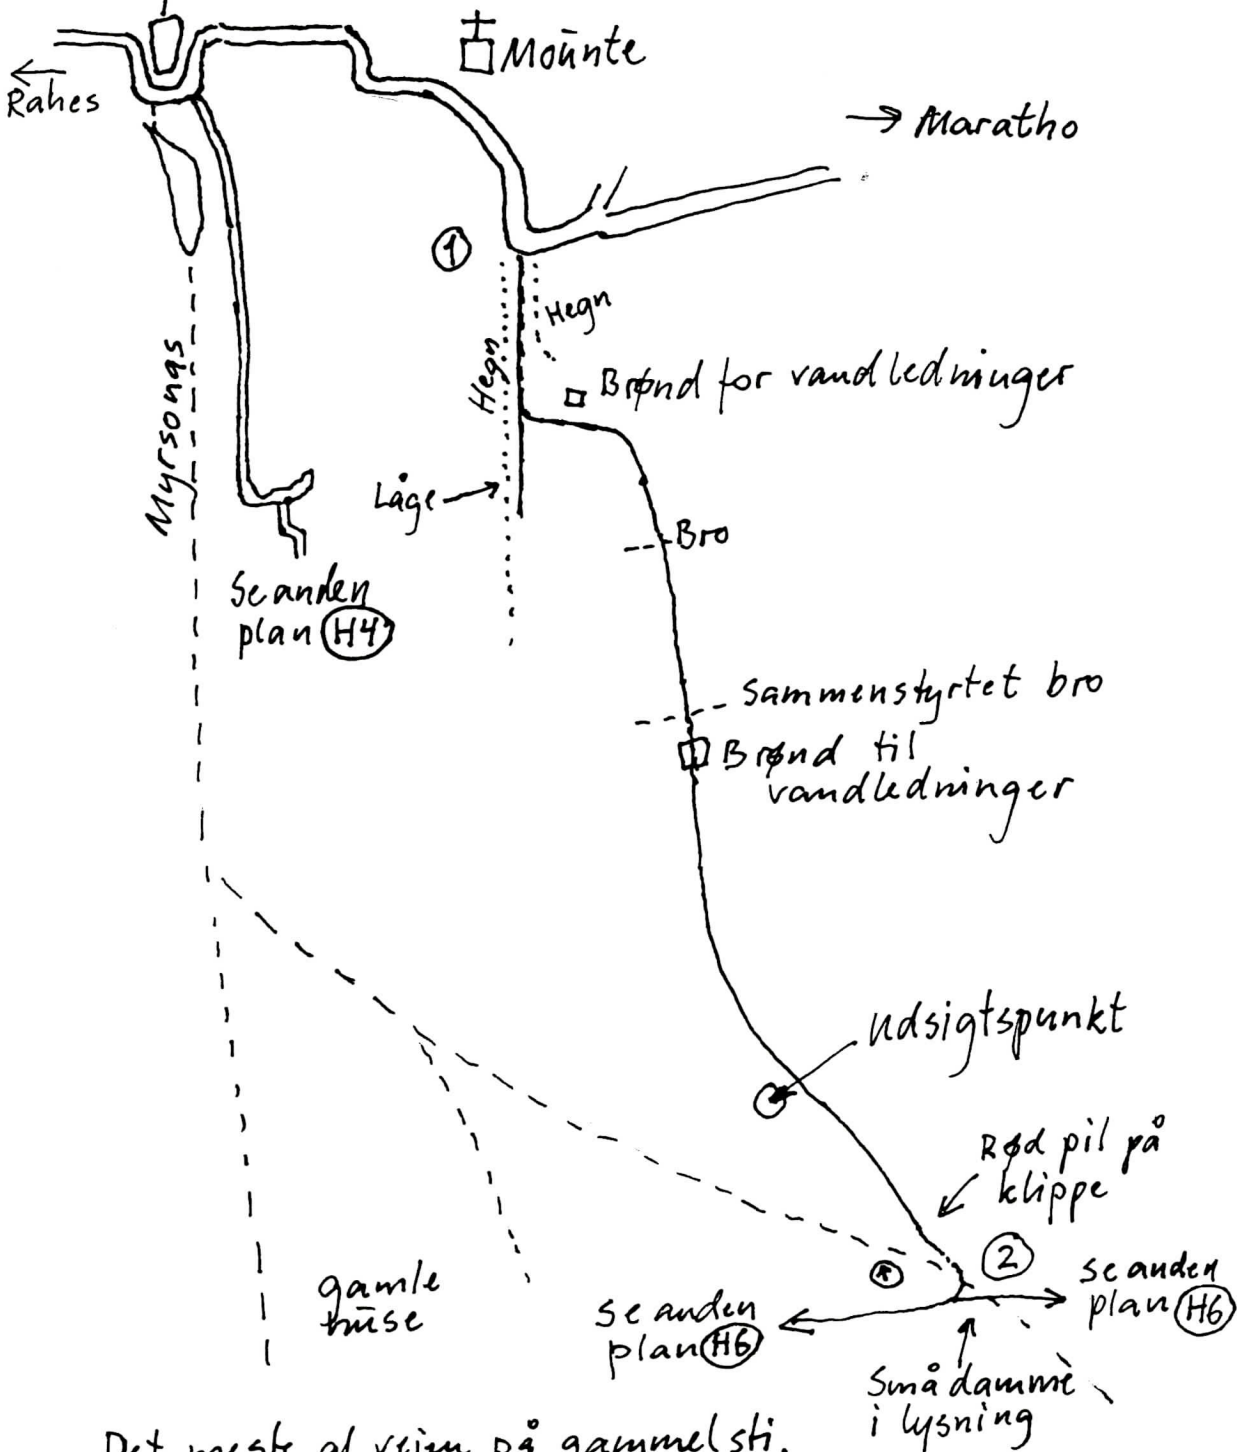 Moūnte
Rahes
→ Maratho
1
Hegn
Hegn
Brønd for vandledninger
Myrsonas
Låge
Bro
Se anden
plan H4
Sammenstyrtet bro
Brønd til
vandledninger
Udsigtspunkt
Rød pil på
klippe
2
gamle
hūse
se anden
plan H6
se anden
plan H6
Små damme
i lysning
Det meste af vejen på gammel sti.